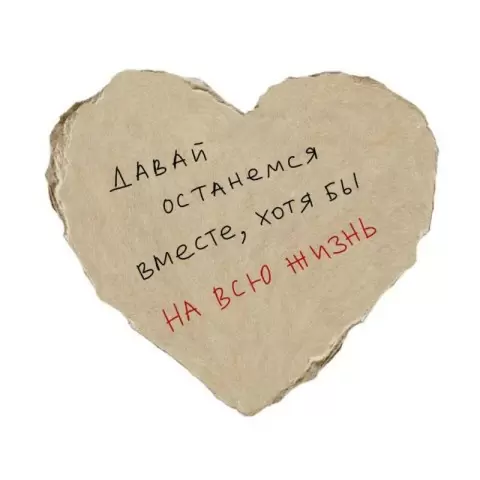 ДАВАЙ
ОСТАНЕМСЯ
ВМЕСТЕ, ХОТЯ БЫ
НА ВСЮ ЖИЗНЬ